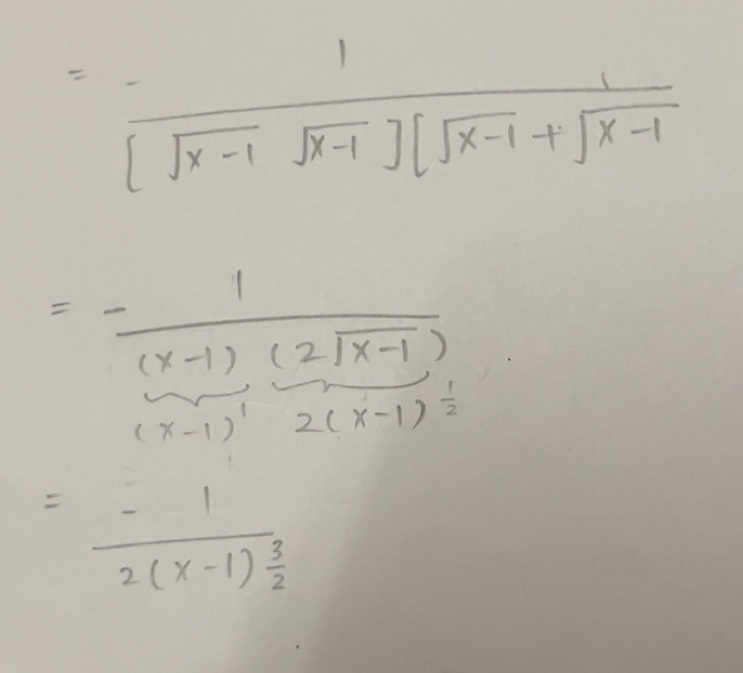 = - 1 / [ √(x-1) √(x-1) ] [ √(x-1) + √(x-1)
= - 1 / (x-1) (2√(x-1))
(x-1)^1 2(x-1)^(1/2)
= - 1 / 2(x-1)^(3/2)